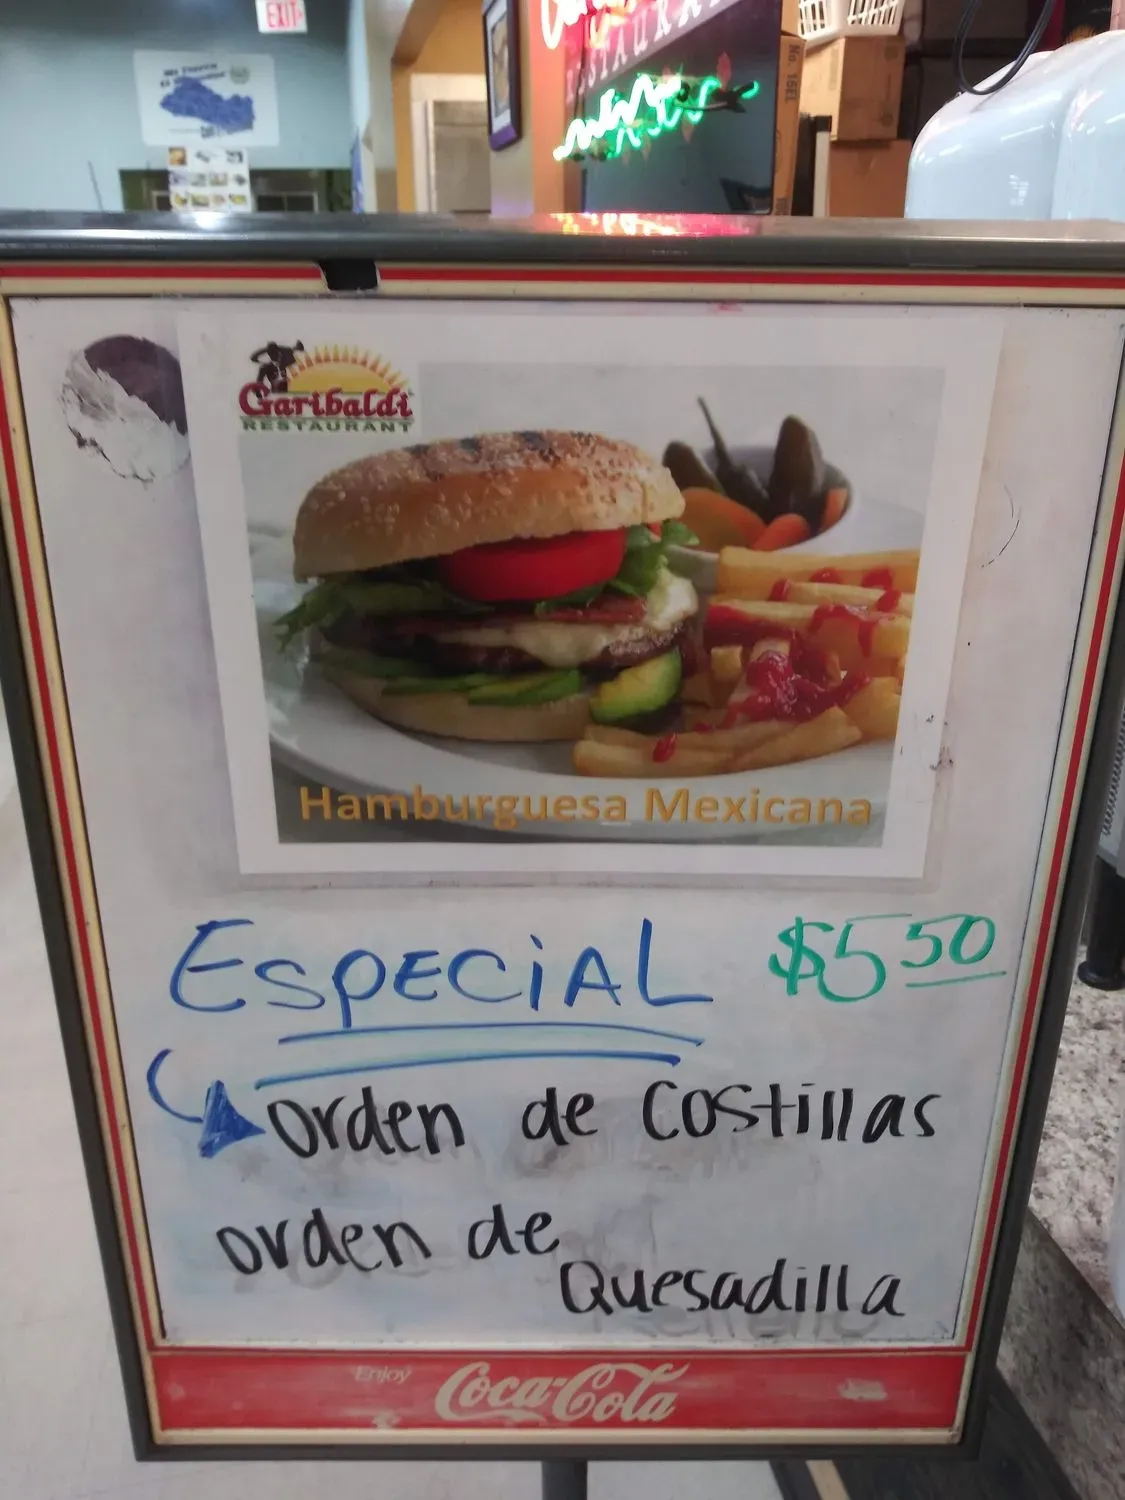 EXIT
RESTAURANT
No. 16EL
Garibaldi
RESTAURANT
Hamburguesa Mexicana
ESPECiAL $5 50
orden de Costillas
orden de
Quesadilla
Enjoy
Coca-Cola